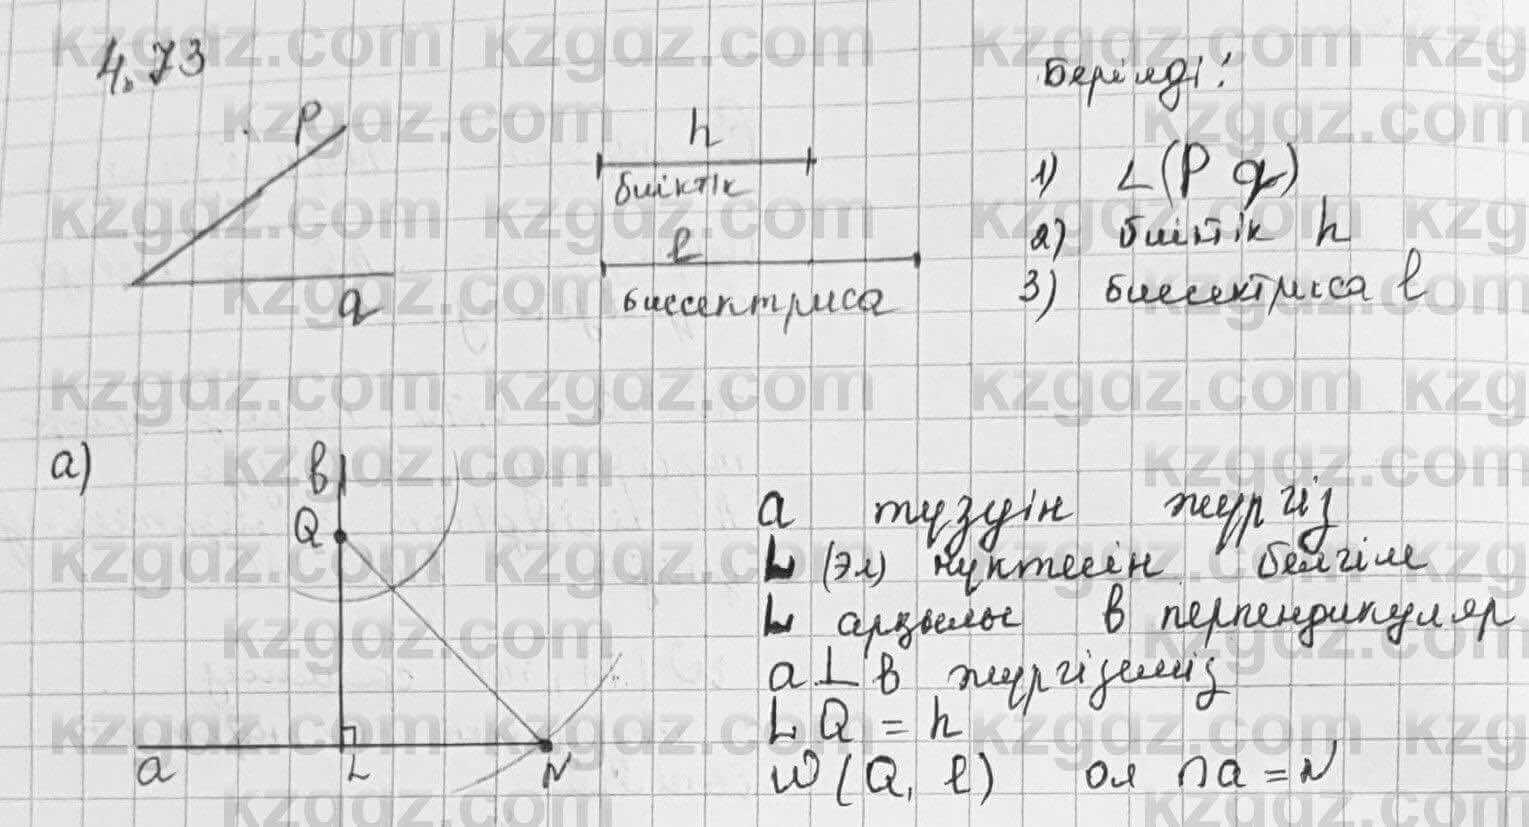 4.73
P
q
h
биіктік
l
биссектриса
Берілді:
1) ∠(P q)
2) биіктік h
3) биссектриса l
а)
в
Q
a
L
N
а түзуін жүргіз
L (эл) нүктесін белгіле
L арқылы в перпендикуляр
а ⊥ в жүргіземіз
L Q = h
W (Q, l) ол ∩ a = N
kzgdz.com